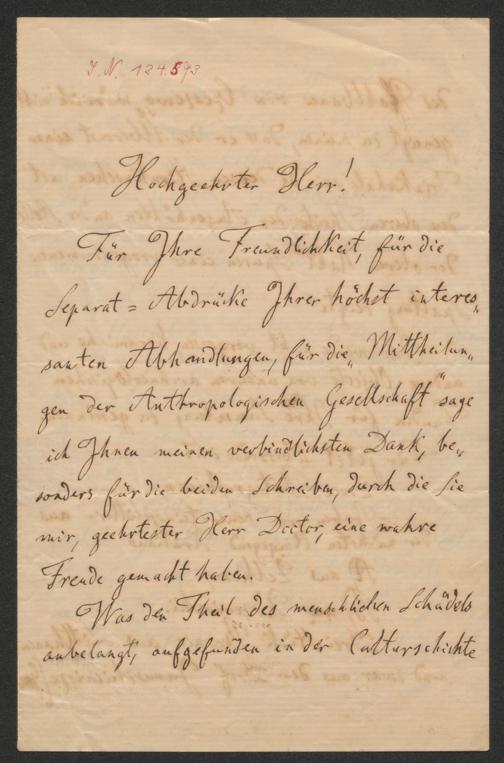 J. N. 124.593
Hochgeehrter Herr!
Für Ihre Freundlichkeit, für die
Separat = Abdrücke Ihrer höchst interes„
santen Abhandlungen, für die „Mittheilun„
gen der Anthropologischen Gesellschaft" sage
ich Ihnen meinen verbindlichsten Dank, be„
sonders für die beiden Schreiben, durch die Sie
mir, geehrtester Herr Doctor, eine wahre
Freude gemacht haben.
Was den Theil des menschlichen Schädels
anbelangt, aufgefunden in der Culturschichte